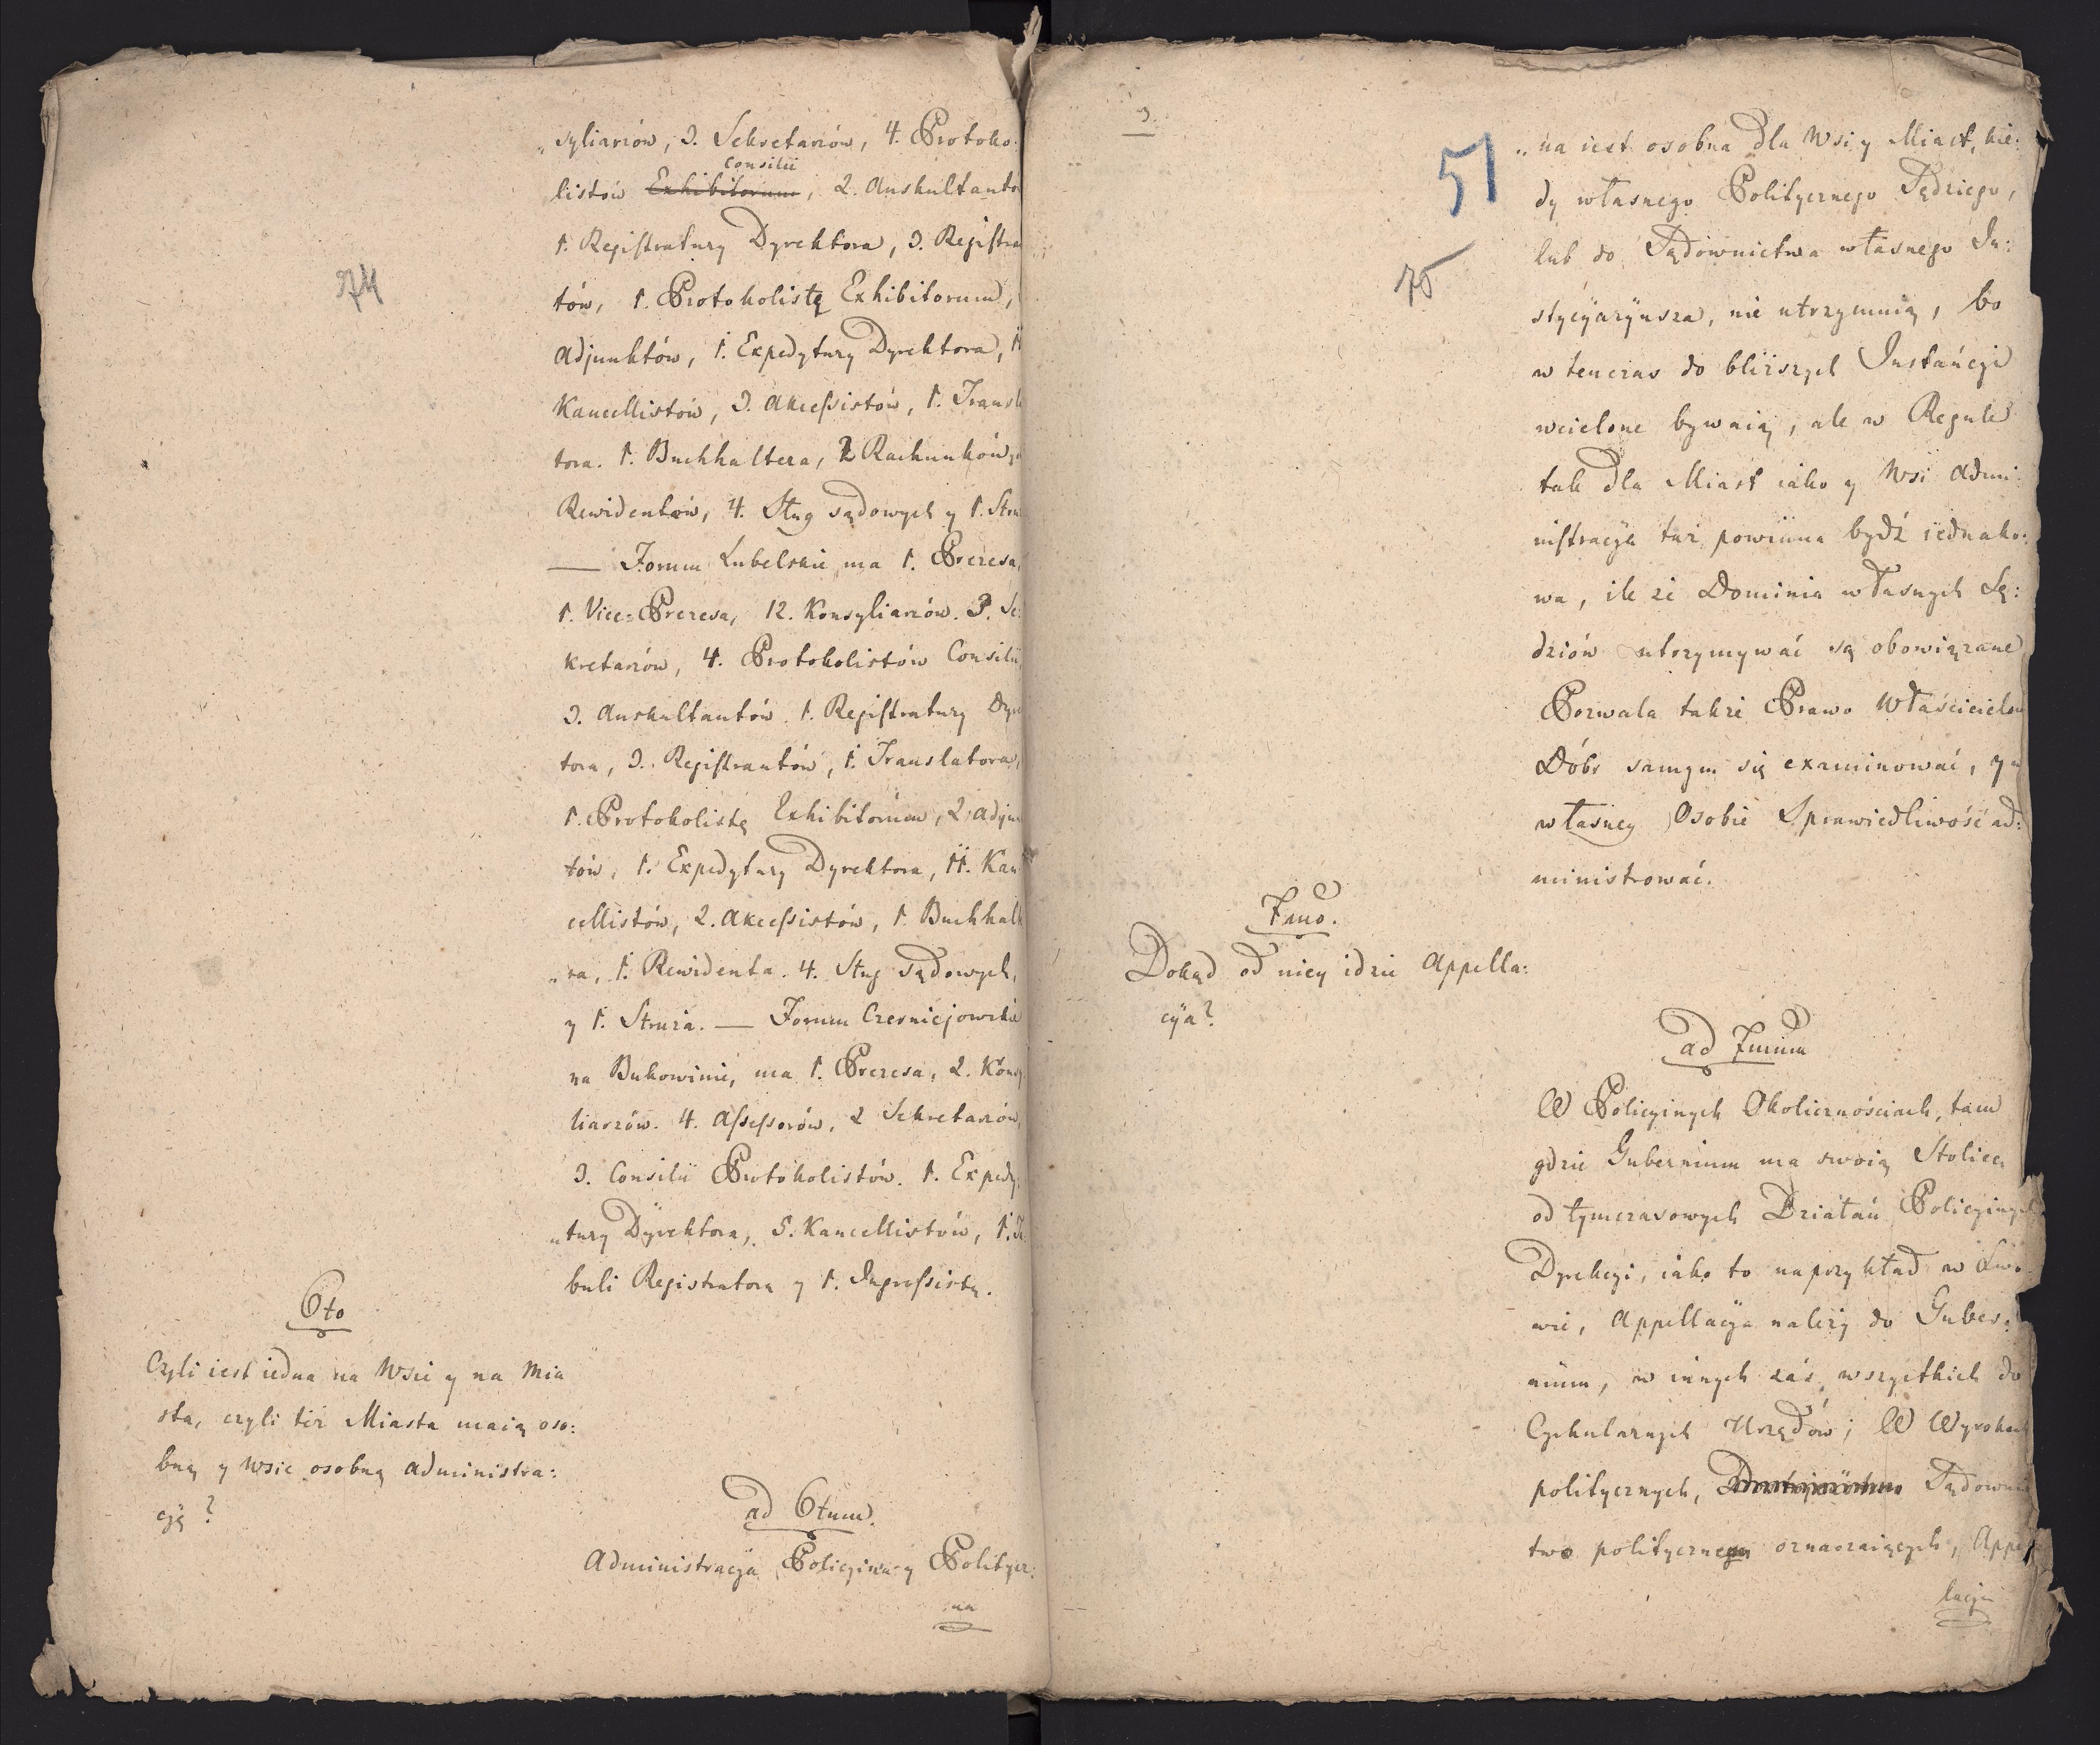 74
syliarzów, 3. Sekretarzów, 4. Protoko:
Consilii
listów Exhibitorum, 2. Auskultanto
1. Registratury Dyrektora, 3. Registra
tów, 1. Protokolistę Exhibitorum,
Adjunktów, 1. Expedytury Dyrektora, 11
Kancellistów, 3. Akcessistów, 1. Transla
tora. 1. Buchhaltera, 2 Rachunków
Rewidentów, 4. Sług sądowych y 1. Stru
— Forum Lubelskie ma 1. Prezesa,
1. Vice=Prezesa, 12. Konsyliarzów. 3. Se:
kretarzów, 4. Protokolistów Consilii,
3. Auskultantów. 1. Registratury Dyre
tora, 3. Registrantów, 1. Translatora,
1. Protokolistę Exhibitorum, 2. Adjun
tów, 1. Expedytury Dyrektora, 11. Kan
cellistów, 2. Akcessistów, 1. Buchhalte
„ra, 1. Rewidenta. 4. Sług sądowych,
y 1. Stróża. — Forum Czerniejowskie
na Bukowinie, ma 1. Prezesa, 2. Konsy
liarzów. 4. Assessorów, 2 Sekretarzów,
3. Consilii Protokolistów. 1. Expedy
„tury Dyrektora, 5. Kancellistów, 1. Ta
buli Registratora y 1. Ingrossistę.
6to
Czyli iest iedna na Wsie y na Mia
sta, czyli też Miasta maią oso:
bną y Wsie osobną Administra:
cyę?
ad 6tum.
Administracya Policyina y Polityc:
na
3.
51
75
„na iest osobna dla Wsi y Miast, kie:
dy własnego Politycznego Sędziego,
lub do Sądownictwa własnego Ju:
stycyaryusza, nie utrzymuią, bo
w tenczas do bliższych Instancyi
wcielone bywaią, ale w Regule
tak dla Miast iako y Wsi Admi:
nistracya taż powinna bydź iednako:
wa, ile że Dominia własnych Sę:
dziów utrzymywać są obowiązane
Pozwala także Prawo Właścicielom
Dóbr samym się examinować, y w
własney Osobie Sprawiedliwość ad:
ministrować.
7mo.
Dokąd od niey idzie Appella:
cya?
ad 7mum
W Policyinych Okolicznościach, tam
gdzie Gubernium ma swoią Stolicę,
od tymczasowych Działań Policyinych
Dyrekcyi, iako to naprzykład w Lwo
wie, Appellacya należy do Guber:
nium, w innych zaś wszystkich do
Cyrkularnych Urzędów; W Wyrokach
politycznych, Sądowni
two polityczne oznaczaiących, Appel
lacya